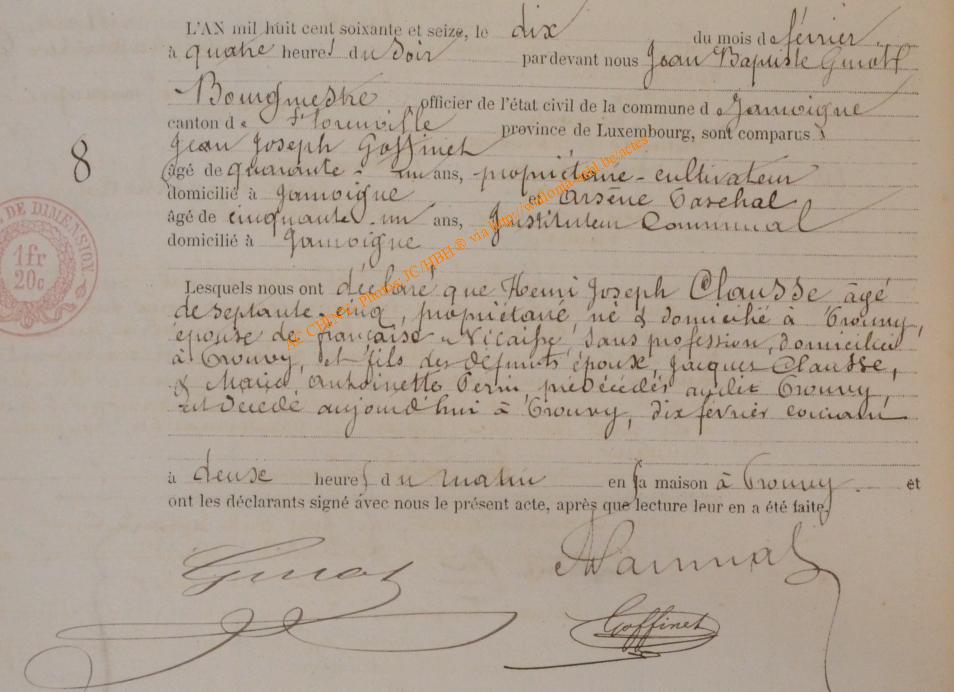 L'AN mil huit cent soixante et seize, le dix du mois de février
à quatre heures du soir par devant nous Jean Baptiste
Bourgmestre officier de l'état civil de la commune de Jamoigne
canton de Florenville province de Luxembourg, sont comparus
Jean Joseph Goffinet
8
âgé de quarante - un ans, propriétaire - cultivateur
domicilié à Jamoigne et Arsène
âgé de cinquante - un ans, Instituteur Communal
domicilié à Jamoigne
DE DIMENSION
1fr
20c
AE CHINY Photos JC/HBH ® via http://wallonia.and.be/actes
Lesquels nous ont déclaré que Henri Joseph Clausse, âgé
de septante - cinq, propriétaire, né & domicilié à Prouvy,
épouse de françoise Nicaise, sans profession, domiciliée
à Prouvy, et fils des défunts époux, Jacques Clausse,
& Marie Antoinette Perin, prédécédés audit Prouvy,
est décédé aujourd'hui à Prouvy, dix février courant
à deuse heures du matin en sa maison à Prouvy. et
ont les déclarants signé avec nous le présent acte, après que lecture leur en a été faite.
Goffinet